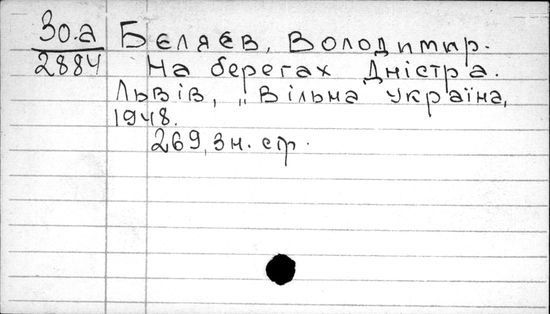 30.а
2884
Бєляєв, Володимир.
На берегах Дністра.
Львів, „Вільна Україна,
1948.
269, 3 н. стр.